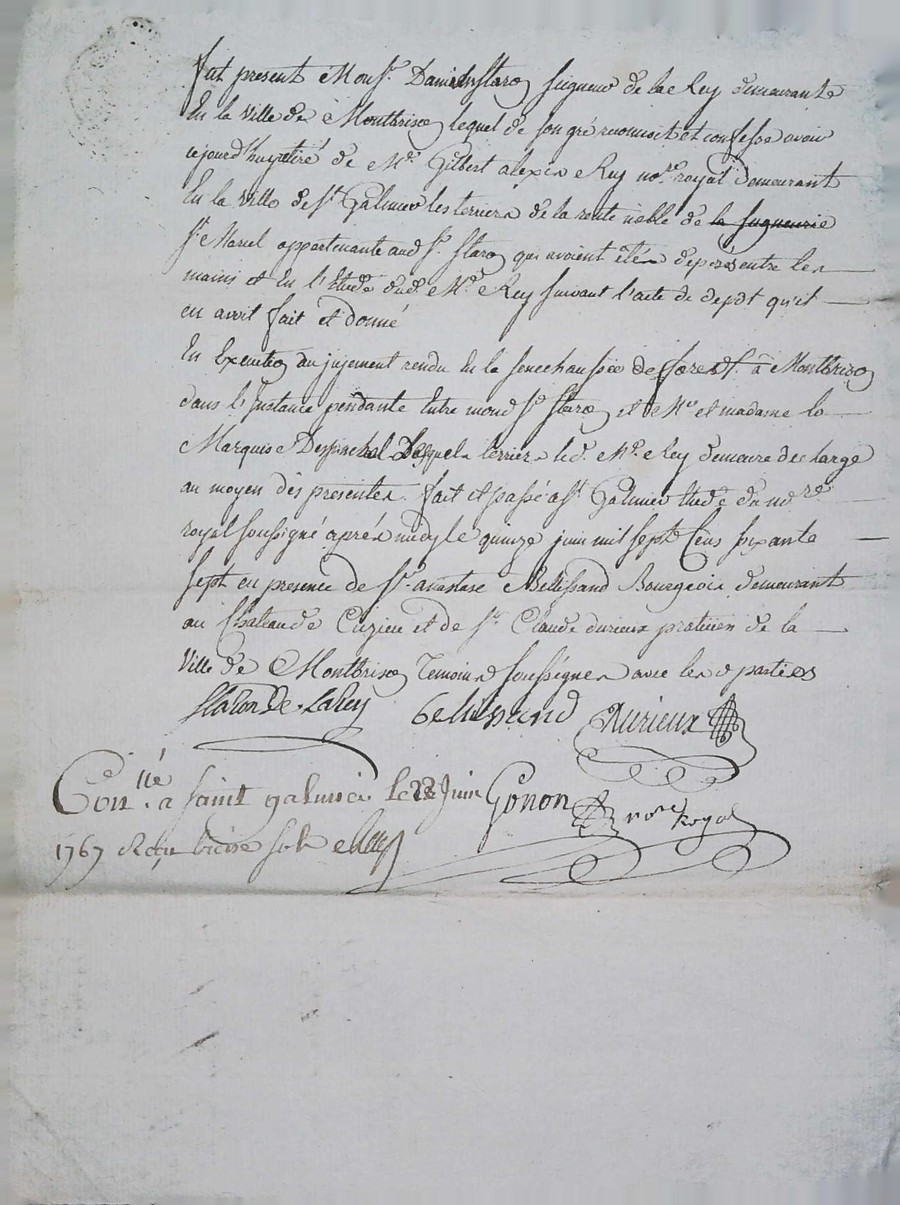 fut present Monsr. Daniel Staroy seigneur de la Rey demeurante
En la Ville de Montbrison lequel de son gré reconnoit et confesse avoir
cejourd'huy retiré de Mre. Gilbert alexis Rey nore. royal demeurant
En la ville de St. Galmier les terriers de la rente noble de la seigneurie
St. Marcel appartenante aud Sr. Staron qui avoient étés deposés entre les
mains et En l'Etude dud. Mre. Rey suivant l'acte de depot qu'il
en avoit fait et donné
En Execution du jugement rendu En la senechaussée de forest à Montbrison
dans l'Instance pendante Entre mond Sr. Staron et Mr. et madame la
Marquise Despinchal Desquels terriers led. Mre. Rey demeure decharge
au moyen des presentes. fait et passé a St. Galmier Etude du nore
royal soussigné après midy le quinze juin mil sept Cens soixante
sept en presence de Sr. anastase Bellissand Bourgeois demeurant
au Chateau de Cuzieu et de Sr. Claude durieux praticien de la
Ville de Montbrison Temoins soussignés avec les parties
Staron De LaRey Bellissand Durieux
Conllé. a saint galmier le 22 Juin Gonon nore Royal
1767 Reçu treize sols